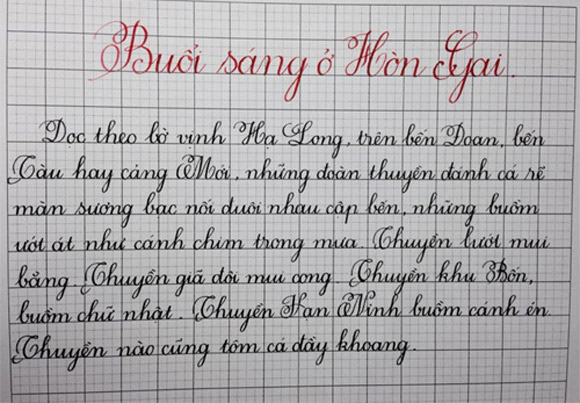 Buổi sáng ở Hòn Gai.
Dọc theo bờ vịnh Hạ Long, trên bến Đoan, bến
Tàu hay cảng Mới, những đoàn thuyền đánh cá rẽ
màn sương bạc nối đuôi nhau cập bến, những buồm
ướt át như cánh chim trong mưa. Thuyền lưới mui
bằng. Thuyền giã đôi mui cong. Thuyền khu Bốn,
buồm chữ nhật. Thuyền Vạn Ninh buồm cánh én.
Thuyền nào cũng tôm cá đầy khoang.